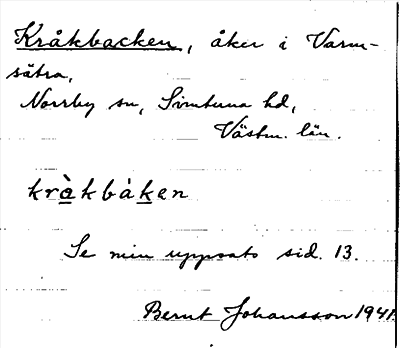 Kråkbacken, åker i Varm-
sätra,
Norrby sn, Simtuna hd,
Västm. län.
kròkbàken
Se min uppsats sid. 13.
Bernt Johansson 1941.